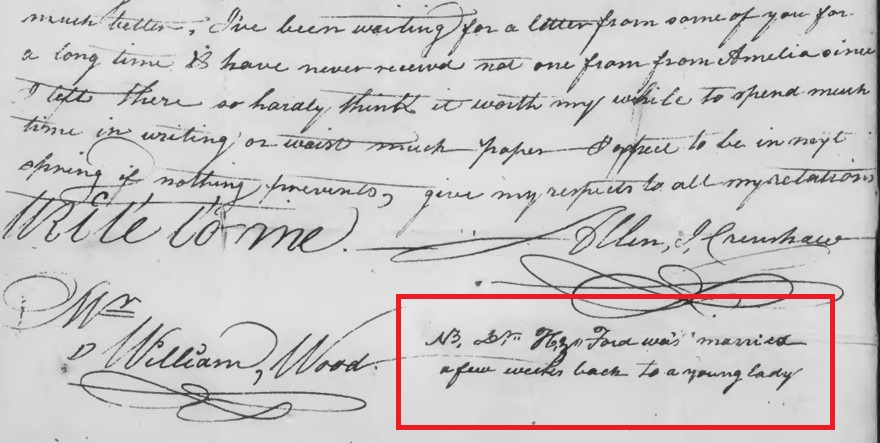 much better, I've been waiting for a letter from some of you for
a long time & have never receivd not one from from Amelia since
I left there so hardly think it worth my while to spend much
time in writing or waist much paper I expect to be in next
spring if nothing prevents, give my respects to all my relations
Write to me.
Allen, J, Crenshaw
Mr
William, Wood.
NB, Dr Ford was married
a few weeks back to a young lady